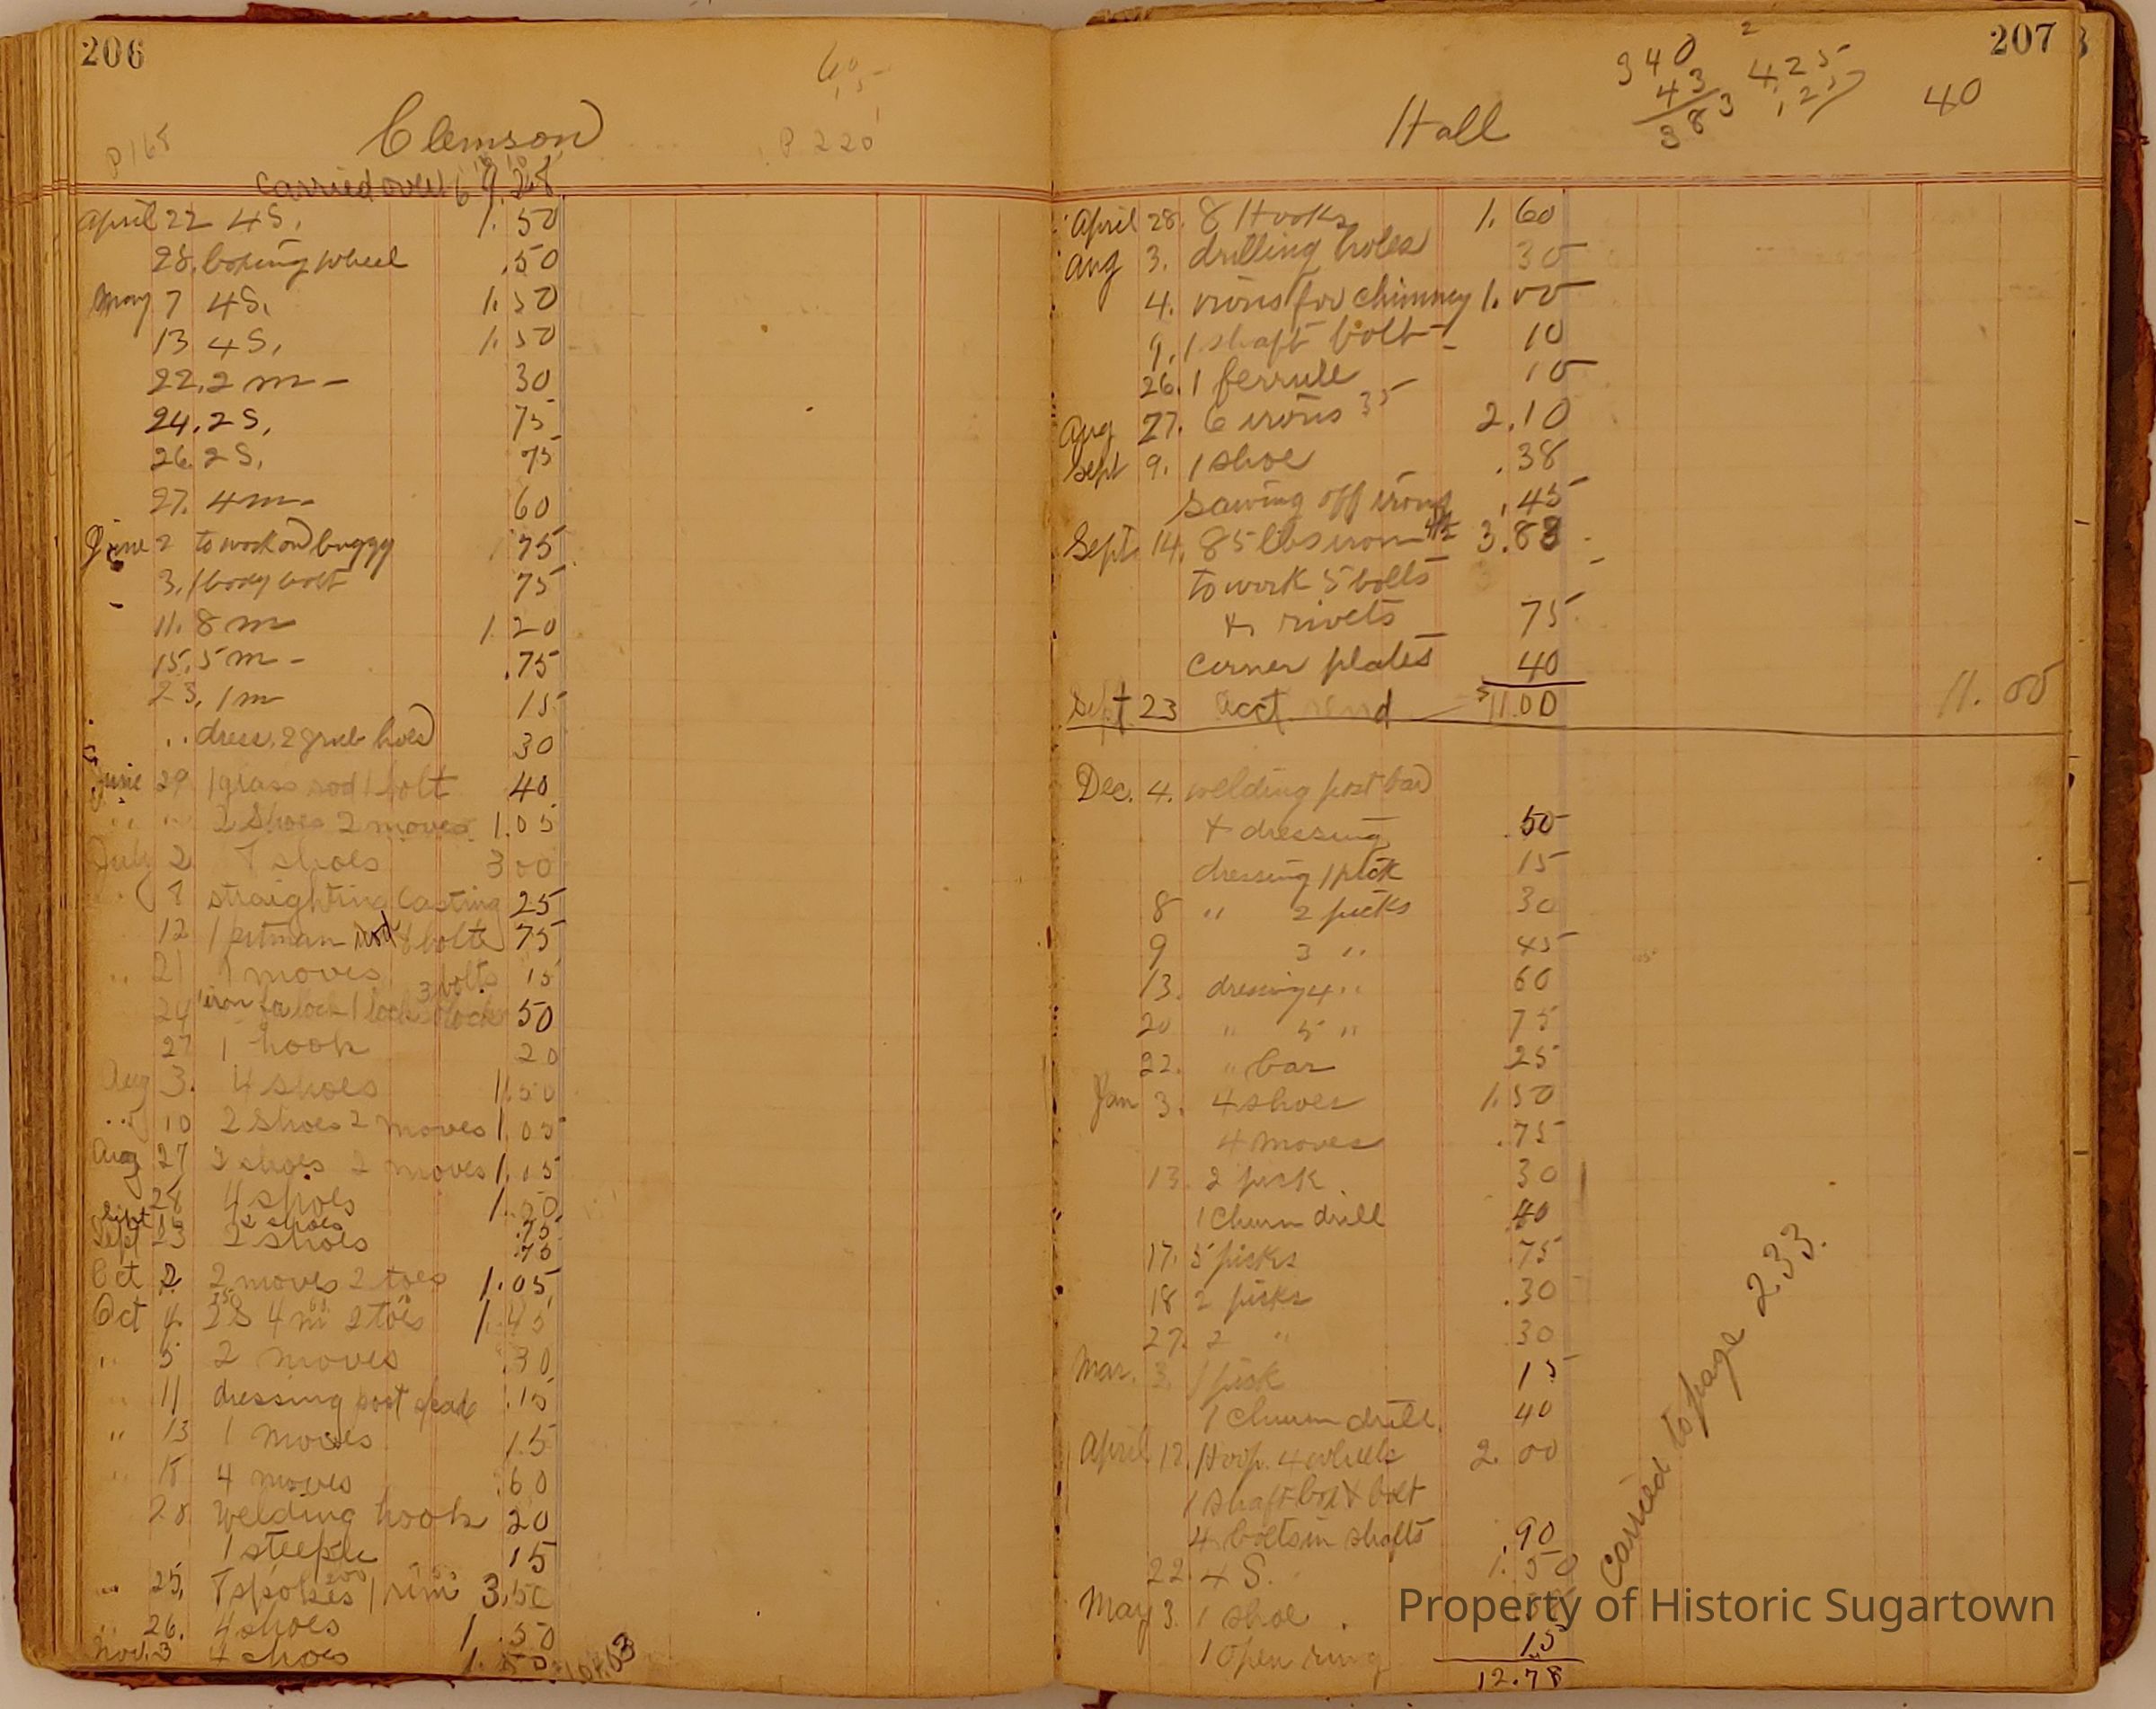 206
P165
60
5
Clemson
P 220
Carried over 69.28
April 22 4 S. 1.50
28. boxing wheel .50
May 7 4 S. 1.50
13 4 S. 1.50
22. 2 m - 30
24. 2 S. 75
26. 2 S. 75
27. 4 m - 60
June 2 to work on buggy 75
3. 1 body bolt 75
11. 8 m 1.20
15. 5 m - .75
23. 1 m 15
.. dress. 2 grub hoes 30
June 29 1 grass rod 1 bolt 40
" " 2 Shoes 2 moves 1.05
July 2 8 shoes 300
8 straighting casting 25
12 1 pitman rod 8 bolts 75
" 21 1 moves 15
3 bolts
24 iron for lock 1 lock 50
27 1 hook 20
Aug 3. 4 shoes 1.50
" 10 2 Shoes 2 moves 1.05
Aug 27 2 shoes 2 moves 1.05
28 4 shoes 1.50
Sept 2 shoes .75
Sept 23 2 shoes .75
Oct 2 2 moves 2 toes 1.05
Oct 4. 2 S 4 m 2 toes 1.45
" 5 2 moves .30
11 dressing post spade .15
" 13 1 moves 15
" 15 4 moves .60
20 welding hook 20
1 steeple 15
" 25, 8 spokes 1 rim 3.50
" 26. 4 shoes 1.50
Nov. 3 4 shoes 1.50
207
340
43
383
2
425
125
40
Hall
April 28. 8 Hooks 1.60
Aug 3. drilling holes 35
4. irons for chimney 1.00
9. 1 shaft bolt - 10
26. 1 ferrule 10
Aug 27. 6 irons 35 2.10
Sept 9. 1 shoe .38
Sawing off irons .45
Sept. 14. 85 lbs iron 4½ 3.83
to work 5 bolts
& rivets 75
corner plates 40
Sept 23 acct rend $11.00 11.00
Dec. 4. welding post bar
& dressing .50
dressing 1 pick 15
8 " 2 picks 30
9 3 " 45
13. dressing 4 " 60
20 " 5 " 75
22. " bar 25
Jan 3. 4 shoes 1.50
4 moves .75
13. 2 pick 30
1 Churn drill 40
17. 5 picks 75
18 2 picks .30
27. 2 " 30
Mar. 3. 1 pick 15
1 Churn drill. 40
April 12. Hoop. 4 wheels 2.00
1 shaft box & bolt
4 bolts in shafts .90
22. 4 S. 1.50
May 3. 1 shoe .
1 open ring 15
12.78
Carried to page 233.
Property of Historic Sugartown